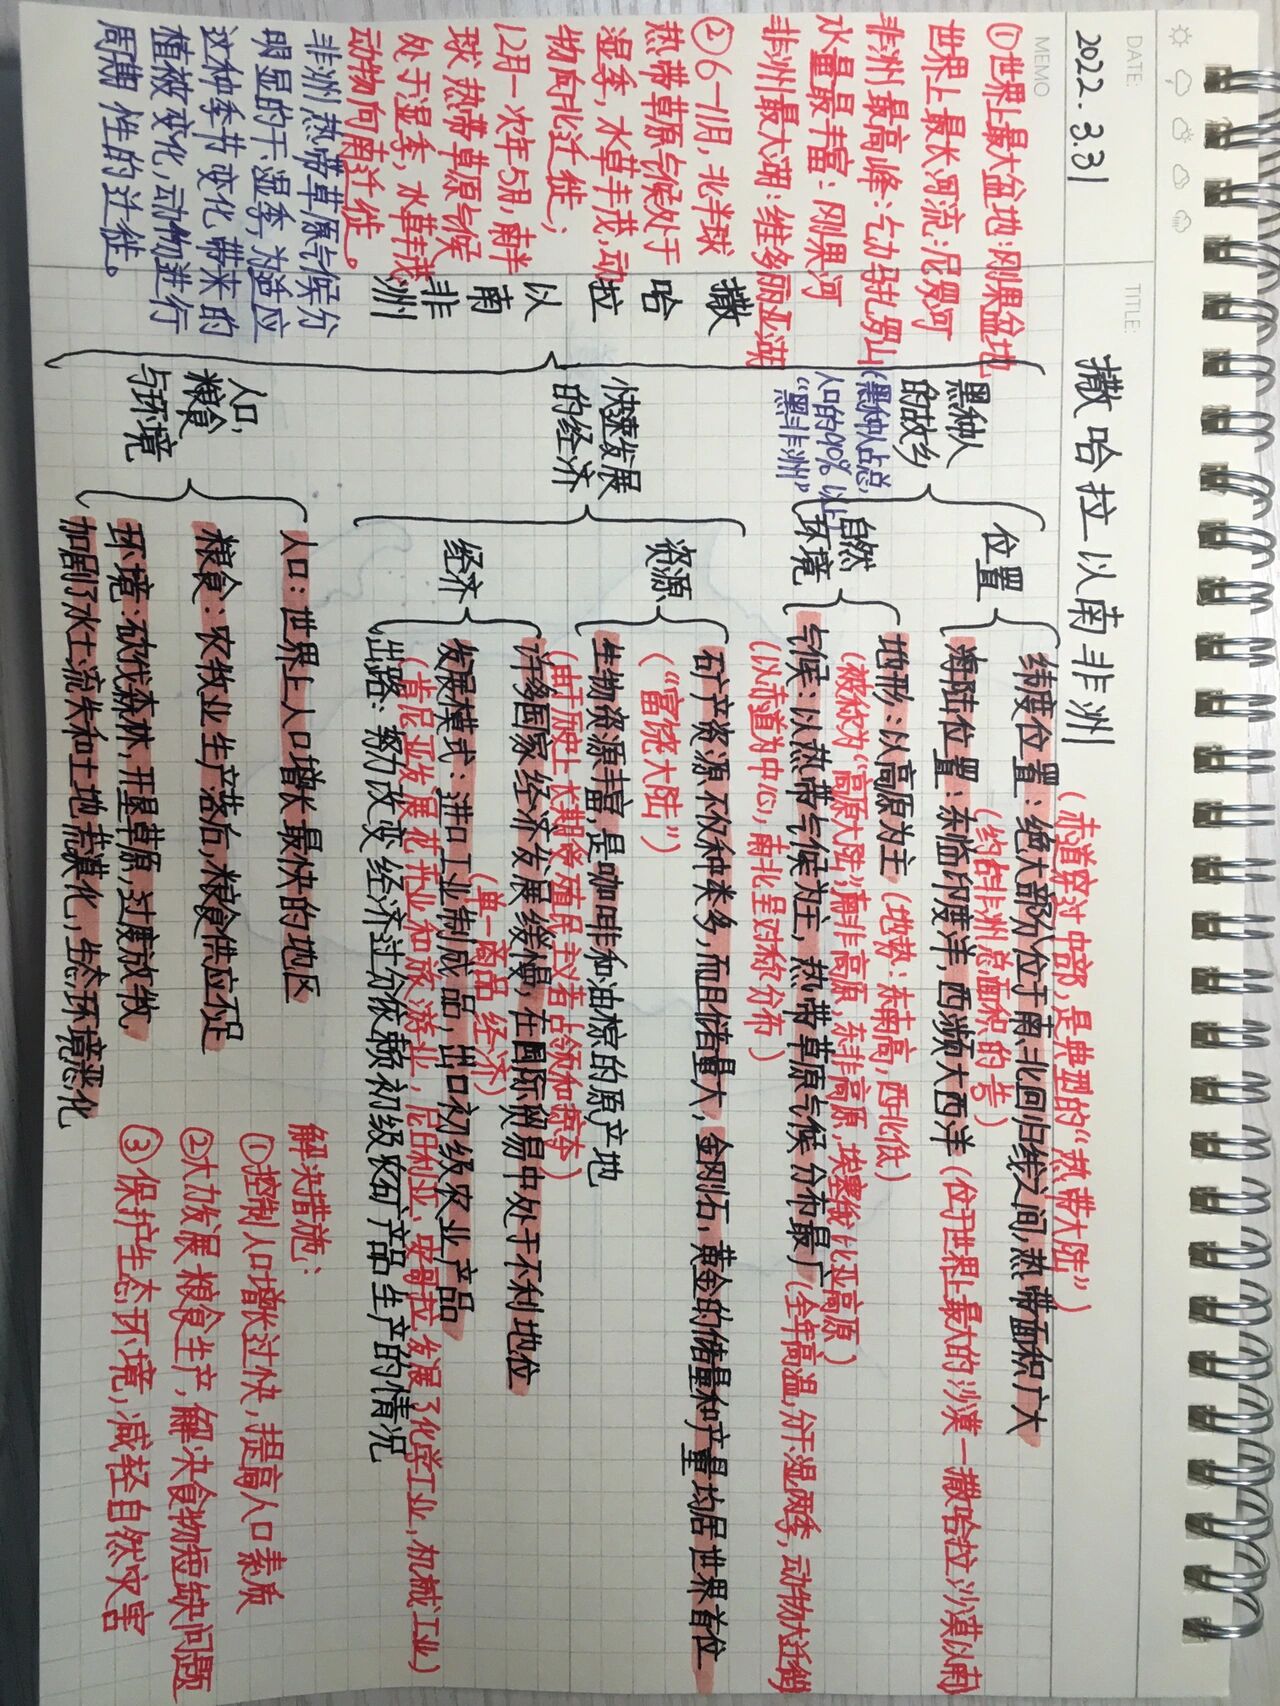 DATE:
2022.3.31
TITLE:
撒哈拉以南非洲
MEMO
①世界上最大盆地:刚果盆地
世界上最长河流:尼罗河
非洲最高峰:乞力马扎罗山
水量最丰富:刚果河
非洲最大湖:维多丽亚湖
②6-11月,北半球
热带草原气候处于
湿季,水草丰茂,动
物向北迁徙;
12月-次年5月,南半
球热带草原气候
处于湿季,水草丰茂
动物向南迁徙。
非洲热带草原气候分
明显的干湿季,为适应
这种季节变化带来的
植被变化,动物进行
周期性的迁徙。
撒哈拉以南非洲
黑种人
的故乡
(黑种人占总
人口的90%以上
“黑非洲”
位置
(赤道穿过中部,是典型的“热带大陆”)
纬度位置:绝大部分位于南北回归线之间,热带面积广大
(约占非洲总面积的
海陆位置:东临印度洋,西濒大西洋(位于世界上最大的沙漠—撒哈拉沙漠以南)
自然
环境
地形:以高原为主(地势:东南高,西北低)
(被称为“高原大陆”,南非高原,东非高原,埃塞俄比亚高原)
气候:以热带气候为主,热带草原气候分布最广(全年高温,分干湿两季,动物大迁徙)
(以赤道为中心,南北呈对称分布)
快速发展
的经济
资源
矿产资源不仅种类多,而且储量大,金刚石,黄金的储量和产量均居世界首位
(“富饶大陆”)
生物资源丰富,是咖啡和油棕的原产地
(由于历史上长期受殖民主义者占领和掠夺)
经济
许多国家经济发展缓慢,在国际贸易中处于不利地位
(单一商品经济)
发展模式:进口工业制成品,出口初级农业产品
(肯尼亚发展花卉业和旅游业,尼日利亚、安哥拉发展了化学工业,机械工业)
出路:努力改变经济过分依赖初级农矿产品生产的情况
人口,
粮食
与环境
人口:世界上人口增长最快的地区
粮食:农牧业生产落后,粮食供应不足
环境:砍伐森林,开垦草原,过度放牧
加剧了水土流失和土地荒漠化,生态环境恶化
解决措施:
①控制人口增长过快,提高人口素质
②大力发展粮食生产,解决食物短缺问题
③保护生态环境,减轻自然灾害